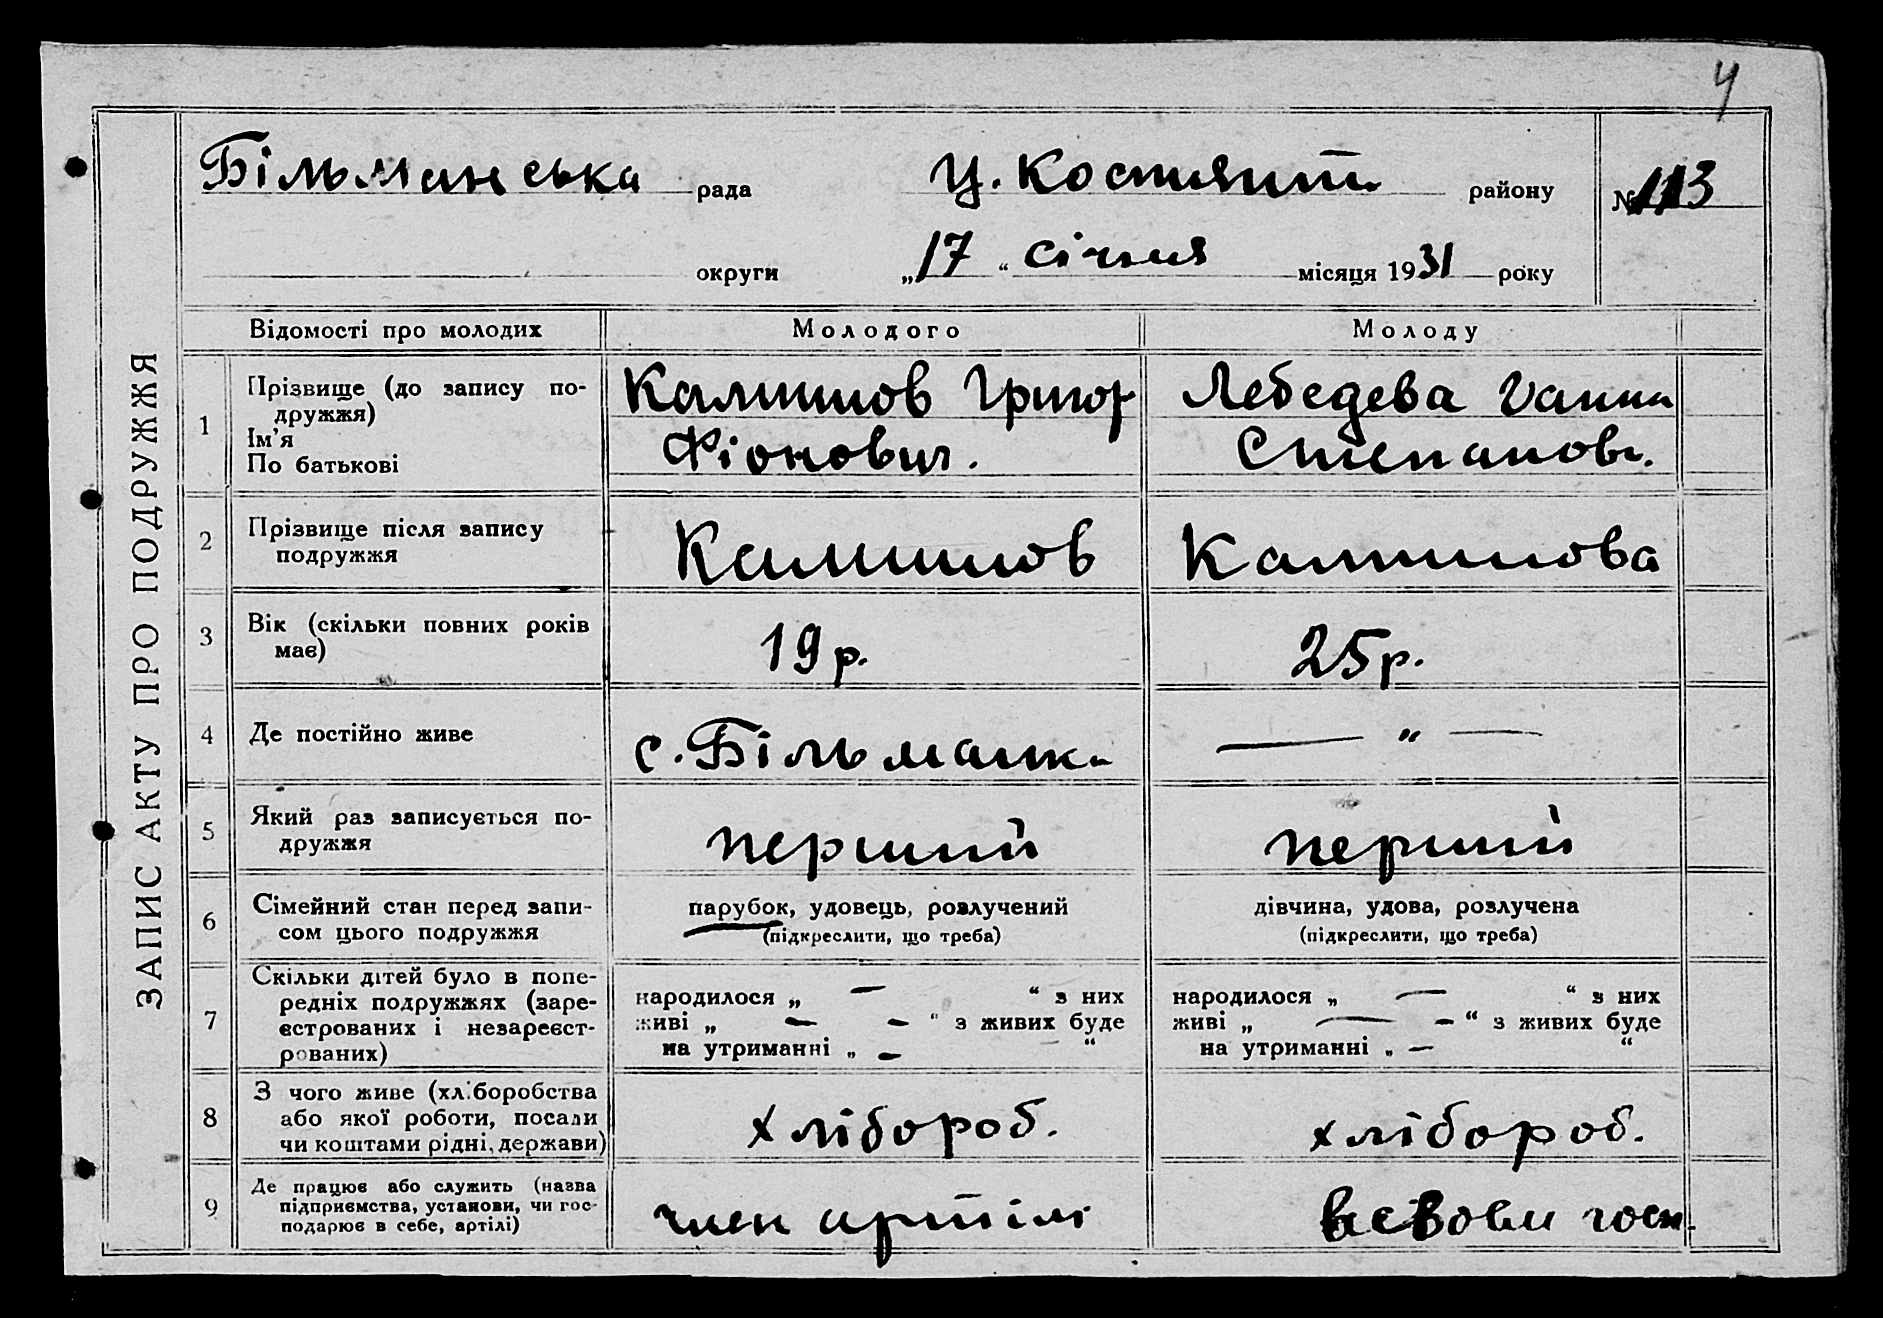 4
Більманська рада Ц. Костянт. району № 113
округи „17“ січня місяця 1931 року
ЗАПИС АКТУ ПРО ПОДРУЖЖЯ
Відомості про молодих Молодого Молоду
1 Прізвище (до запису по-
дружжя)
Ім’я
По батькові
Калинов Григор
Фіонович.
Лебедева Ганна
Степанов.
2 Прізвище після запису
подружжя
Калинов Калинова
3 Вік (скільки повних років
має)
19 р. 25 р.
4 Де постійно живе с. Більманка — „ —
5 Який раз записується по-
дружжя
перший перший
6 Сімейний стан перед запи-
сом цього подружжя
парубок, удовець, розлучений
(підкреслити, що треба)
дівчина, удова, розлучена
(підкреслити, що треба)
7 Скільки дітей було в попе-
редніх подружжях (заре-
єстрованих і незареєст-
рованих)
народилося „ — “ з них
живі „ — — “ з живих буде
на утриманні „ — “
народилося „ — “ з них
живі „ — — “ з живих буде
на утриманні „ — “
8 З чого живе (хліборобства
або якої роботи, посади
чи коштами рідні, держави)
хлібороб. хлібороб.
9 Де працює або служить (назва
підприємства, установи, чи гос-
подарює в себе, артілі)
член артілі госп.